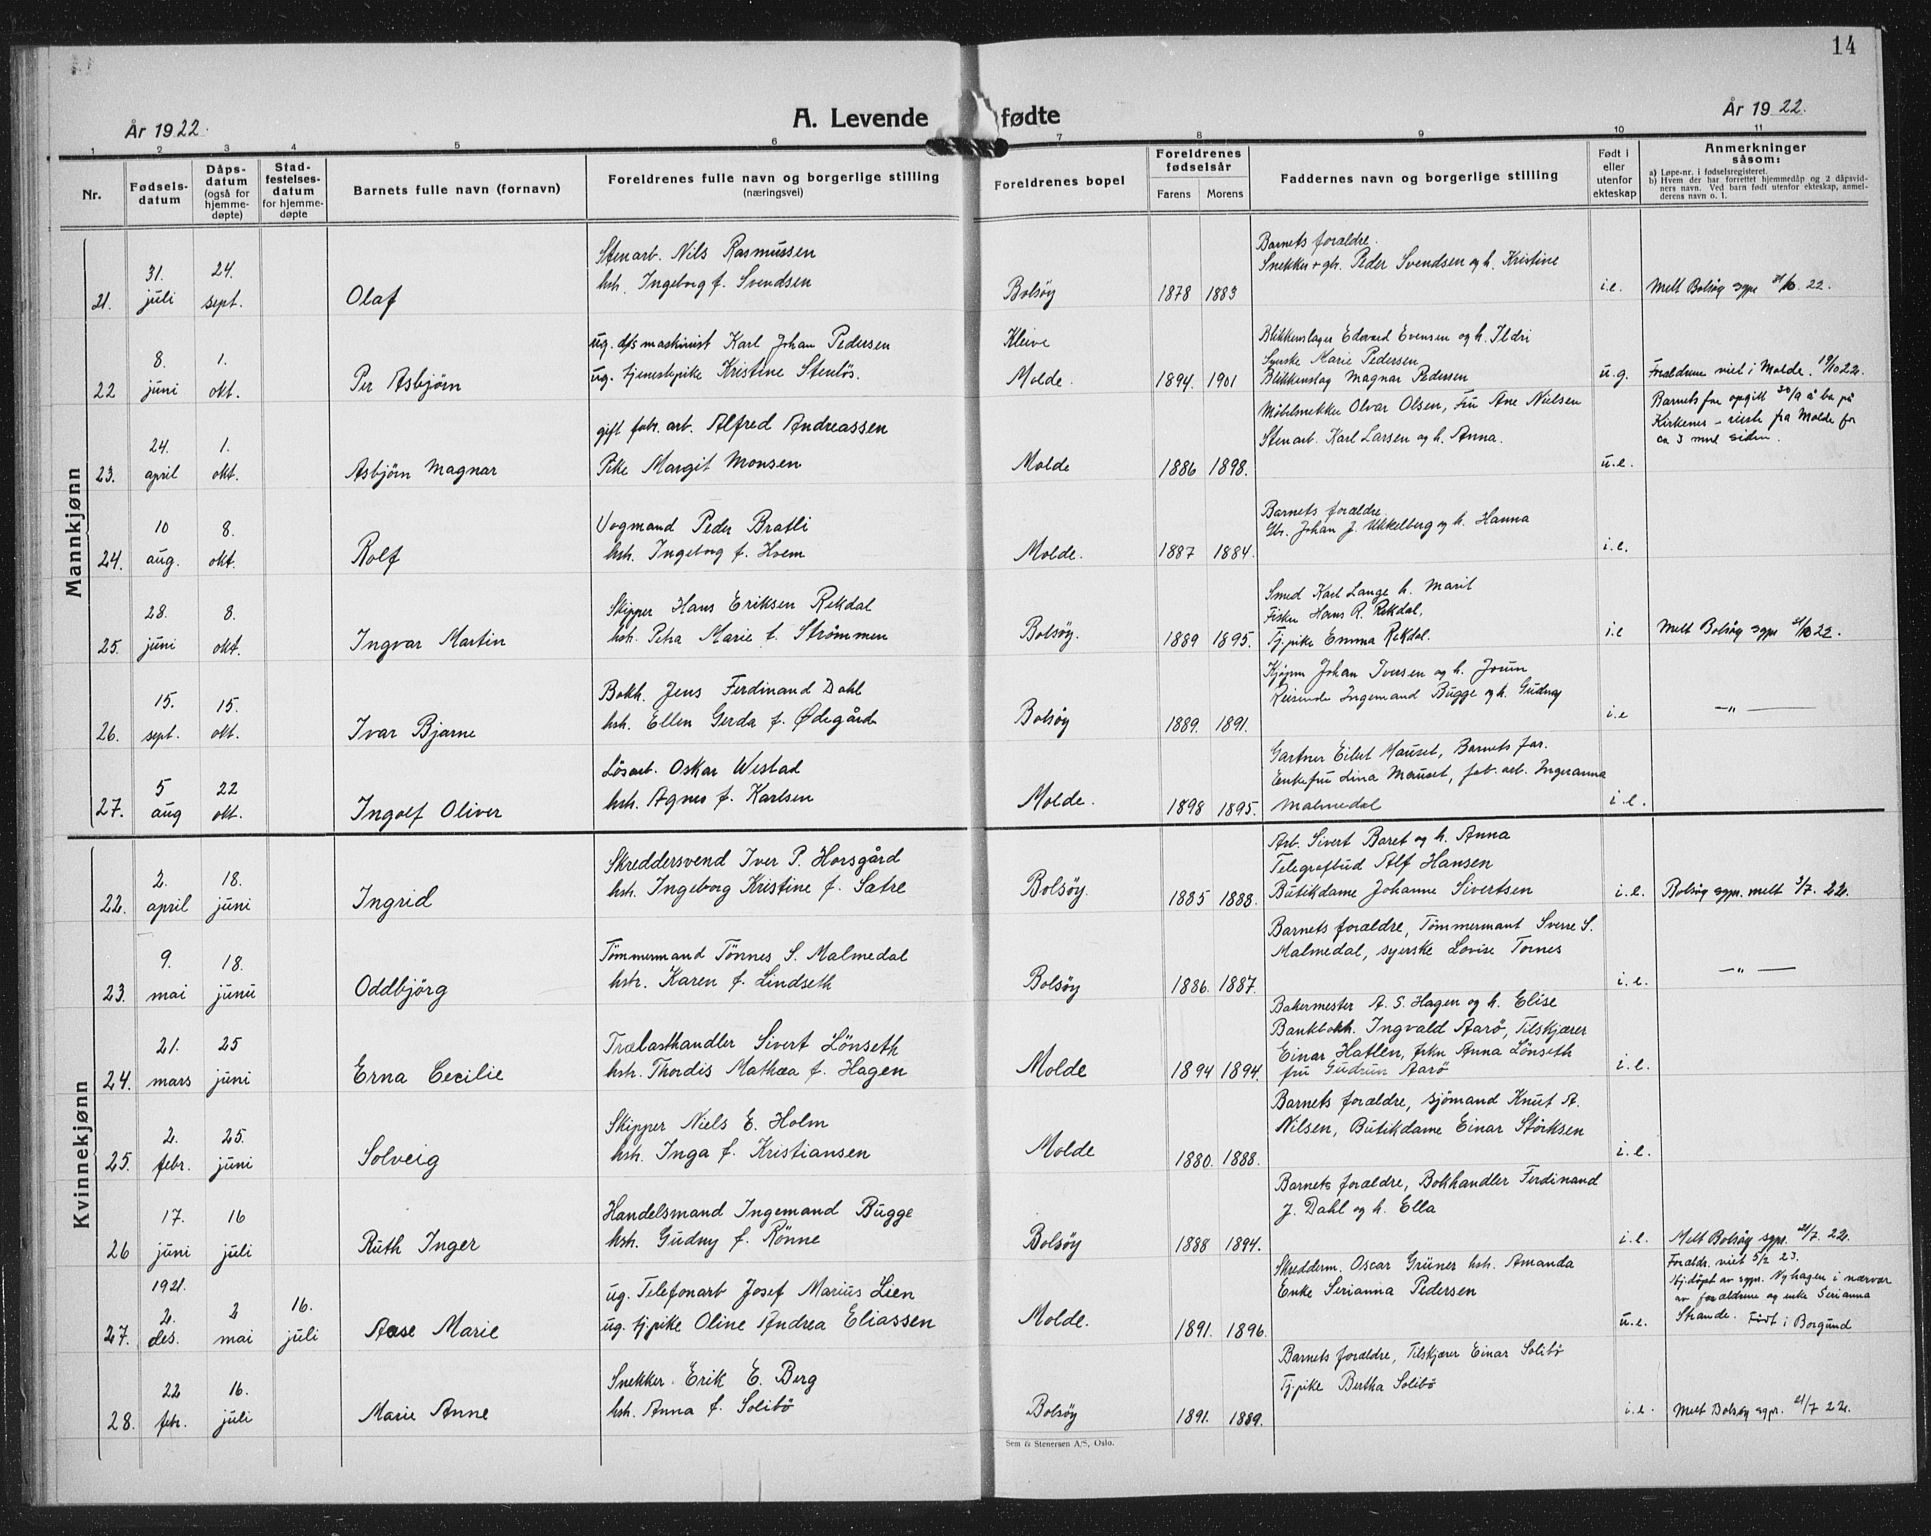 14
År 1922.
A. Levende fødte
År 1922.
1 2 3 4 5 6 7 8 9 10 11
Nr.
Fødsels-
datum
Dåps-
datum
(også for
hjemme-
døpte)
Stad-
festelses-
datum
for hjemme-
døpte
Barnets fulle navn (fornavn)
Foreldrenes fulle navn og borgerlige stilling
(næringsvei)
Foreldrenes bopel
Foreldrenes
fødselsår
Farens Morens
Faddernes navn og borgerlige stilling
Født i
eller
utenfor
ekteskap
Anmerkninger
såsom:
a) Løpe-nr. i fødselsregisteret.
b) Hvem der har forrettet hjemmedåp og 2 dåpsvid-
ners navn. Ved barn født utenfor ekteskap, anmel-
derens navn o. l.
Mannkjønn
21. 31. juli 24. sept. Olaf
Stenarb. Nils Rasmussen
hstr. Ingeborg f. Svendsen
Bolsøy 1878 1883
Barnets forældre.
Snekker + gbr. Peder Svendsen og h. Kristine
i.e. Melt Bolsøy sgpr 21/10. 22.
22 8. juni 1. okt. Per Asbjörn
ug. d/s maskinist Karl Johan Pedersen
ug. tjenestepike Kristine Stenløs.
Kleive
Molde. 1894. 1901
Blikkenslager Edvard Evensen og h. Ildri
Syerske Marie Pedersen
Blikkenslag Magnar Pedersen
u.g. Forældrene viet i Molde. 19/10 22.
23. 24. april 1. okt. Asbjörn Magnar
gift fabr. arb. Alfred Andreassen
Pike Margit Monsen
Molde 1886 1898.
Möbelsnekker Olvar Olsen, Fru Ane Nielsen
Stenarb. Karl Larsen og h. Anna.
u.e. Barnets far opgitt 30/9 å bo på
Kirkenes – reiste fra Molde for
ca 3 mnd siden.
24. 10 aug. 8. okt. Rolf
Vognmand Peder Bratli
hstr. Ingeborg f. Hoem
Molde. 1887 1884.
Barnets forældre
Gbr. Johan J. Ukkelberg og h. Hanna
i.e.
25. 28. juni 8. okt. Ingvar Martin
Skipper Hans Eriksen Rekdal
hstr. Petra Marie f. Strömmen
Bolsøy. 1889 1895.
Smed Karl Lange h. Marit
Fisker Hans R. Rekdal.
Tj.pike Emma Rekdal.
i.e Melt Bolsøy sgpr 21/10 22.
26. 15. sept. 15. okt. Ivar Bjarne
Bokh. Jens Ferdinand Dahl
hstr. Ellen Gerda f. Ødegård
Bolsøy 1889. 1891.
Kjøpm Johan Iversen og h. Jorun
Reisende Ingemand Bugge og h. Gudny
i.e –"–
27. 5 aug 22 okt. Ingolf Oliver
Løsarb. Oskar Westad
hstr. Agnes f. Karlsen
Molde. 1898 1895.
Gartner Eilert Mauset, Barnets far.
Enkefru Lina Mauset, fab. arb. Ingeranna
Malmedal
i.e.
Kvinnekjønn
22. 2. april 18. juni Ingrid
Skreddersvend Iver P. Horsgård
hstr. Ingeborg Kristine f. Sætre
Bolsøy. 1885 1888.
Arb. Sivert Baret og h. Anna
Telegrafbud Alf Hansen
Butikdame Johanne Sivertsen
i.e. Bolsøy sgpr. melt 3/7. 22.
23. 9. mai 18. juni Oddbjörg
Tömmermand Tönnes S. Malmedal
hstr. Karen f. Lindseth
Bolsøy 1886. 1887.
Barnets forældre, Tömmermant Sverre S.
Malmedal, syerske Lovise Tornes
i.e. –"–
24. 21. mars 25 juni Erna Cecilie
Trælasthandler Sivert Lönseth
hstr. Thordis Mathea f. Hagen
Molde 1894 1894.
Bakermester A. S. Hagen og h. Elise
Bankbokh. Ingvald Aarö, Tilskjærer
Einar Hatlen, frkn Anna Lönseth
fru Gudrun Aarö
i.e.
25. 2. febr. 25. juni Solveig
Skipper Niels E. Holm
hstr. Inga f. Kristiansen
Molde 1880. 1888.
Barnets forældre, sjömand Knut A.
Nilsen, Butikdame Einar Störksen
i.e.
26 17. juni 16 juli Ruth Inger
Handelsmand Ingemand Bugge
hstr. Gudny f. Rönne
Bolsøy 1888 1894.
Barnets forældre, Bokhandler Ferdinand
J. Dahl og h. Ella
i.e. Melt Bolsøy sgpr. 21/7. 22.
27. 1921. 2. des. 2 mai 16. juli Aase Marie
ug. Telefonarb Josef Marius Lien
ug. tj.pike Oline Andrea Eliassen
Molde. 1891. 1896.
Skredderm. Oscar Grüner hstr. Amanda
Enke Serianna Pedersen
u.e. Forældr. viet 5/2 23.
Hj.döpt av sgpr. Nyhagen i nærvær
av forældrene og enke Serianna
Strande. Födt i Borgund
28. 22 febr. 16. juli Marie Anne
Snekker Erik E. Berg
hstr. Anna f. Solibö
Bolsøy 1891. 1889.
Barnets forældre, Tilskjærer Einar Solibö
Tj.pike Bertha Solibö
i.e. Melt Bolsøy sgpr. 21/7 22.
Sem & Stenersen A/S, Oslo.